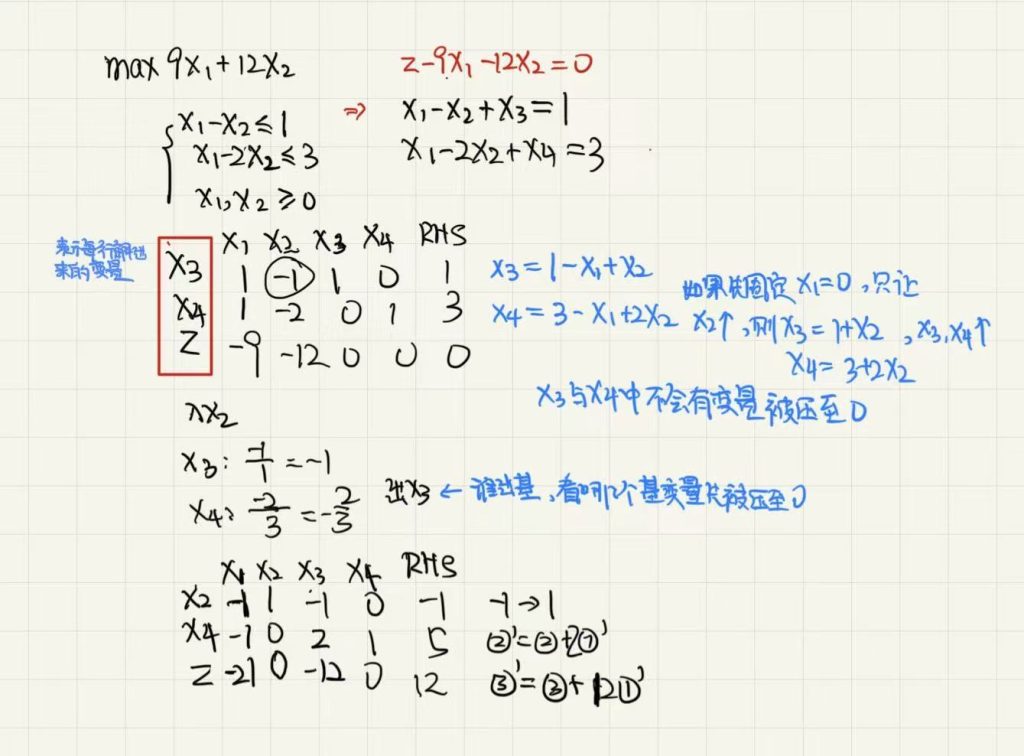 max 9x₁+12x₂
z-9x₁-12x₂=0
x₁-x₂≤1
⇒ x₁-x₂+x₃=1
x₁-2x₂≤3
x₁-2x₂+x₄=3
x₁,x₂≥0
表示每行解出
来的变量
x₁ x₂ x₃ x₄ RHS
x₃ 1 -1 1 0 1
x₄ 1 -2 0 1 3
z -9 -12 0 0 0
x₃=1-x₁+x₂
x₄=3-x₁+2x₂
如果先固定x₁=0,只让
x₂↑,则x₃=1+x₂,x₃,x₄↑
x₄=3+2x₂
x₃与x₄中不会有变量被压至0
入x₂
x₃: -1/1=-1
x₄: -2/3=-2/3
出x₃ ← 谁出基,看哪个基变量先被压至0
x₁ x₂ x₃ x₄ RHS
x₂ -1 1 -1 0 -1 -1→1
x₄ -1 0 2 1 5 ②'=②+2①'
z -21 0 -12 0 12 ③'=③+12①'